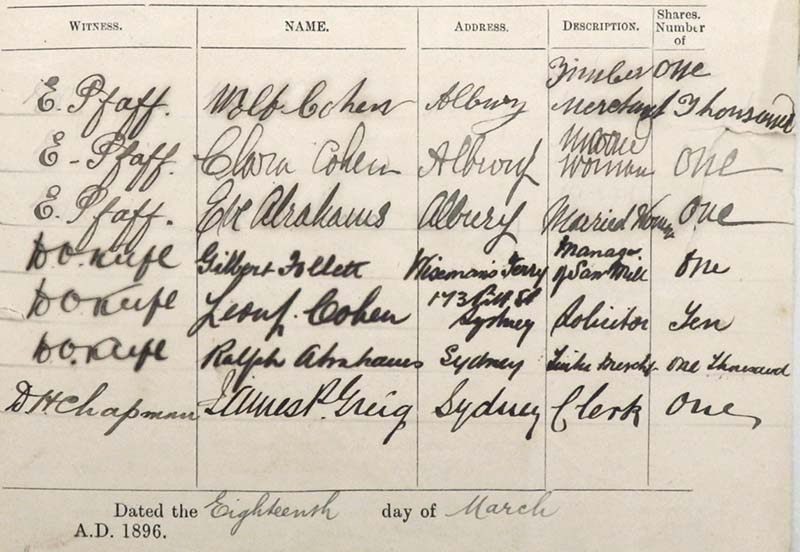 WITNESS. NAME. ADDRESS. DESCRIPTION. Shares. Number of
Timber One
E. Pfaff. Wolf Cohen Albury Merchant Thousand
E. Pfaff. Clara Cohen Albury Married Woman One
E. Pfaff. Eve Abrahams Albury Married Woman One
Manager
D O'Keefe Gilbert Follett Wiseman's Ferry of Saw Mill One
173 Pitt St
D O'Keefe Cohen Sydney Solicitor Ten
D O'Keefe Ralph Abrahams Sydney Timber Mercht. One Thousand
D H Chapman James P. Greig Sydney Clerk One
Dated the Eighteenth day of March
A.D. 1896.